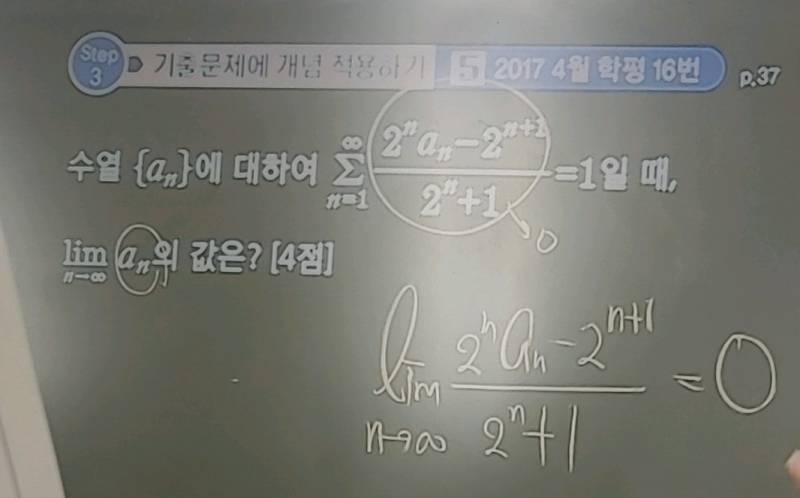 Step 3 기출문제에 개념 적용하기 5 2017 4월 학평 16번 p.37
수열 {aₙ}에 대하여 ∑_{n=1}^{∞} (2ⁿaₙ-2ⁿ⁺¹)/(2ⁿ+1) =1일 때,
→0
lim_{n→∞} aₙ의 값은? [4점]
lim_{n→∞} (2ⁿaₙ-2ⁿ⁺¹)/(2ⁿ+1) = 0